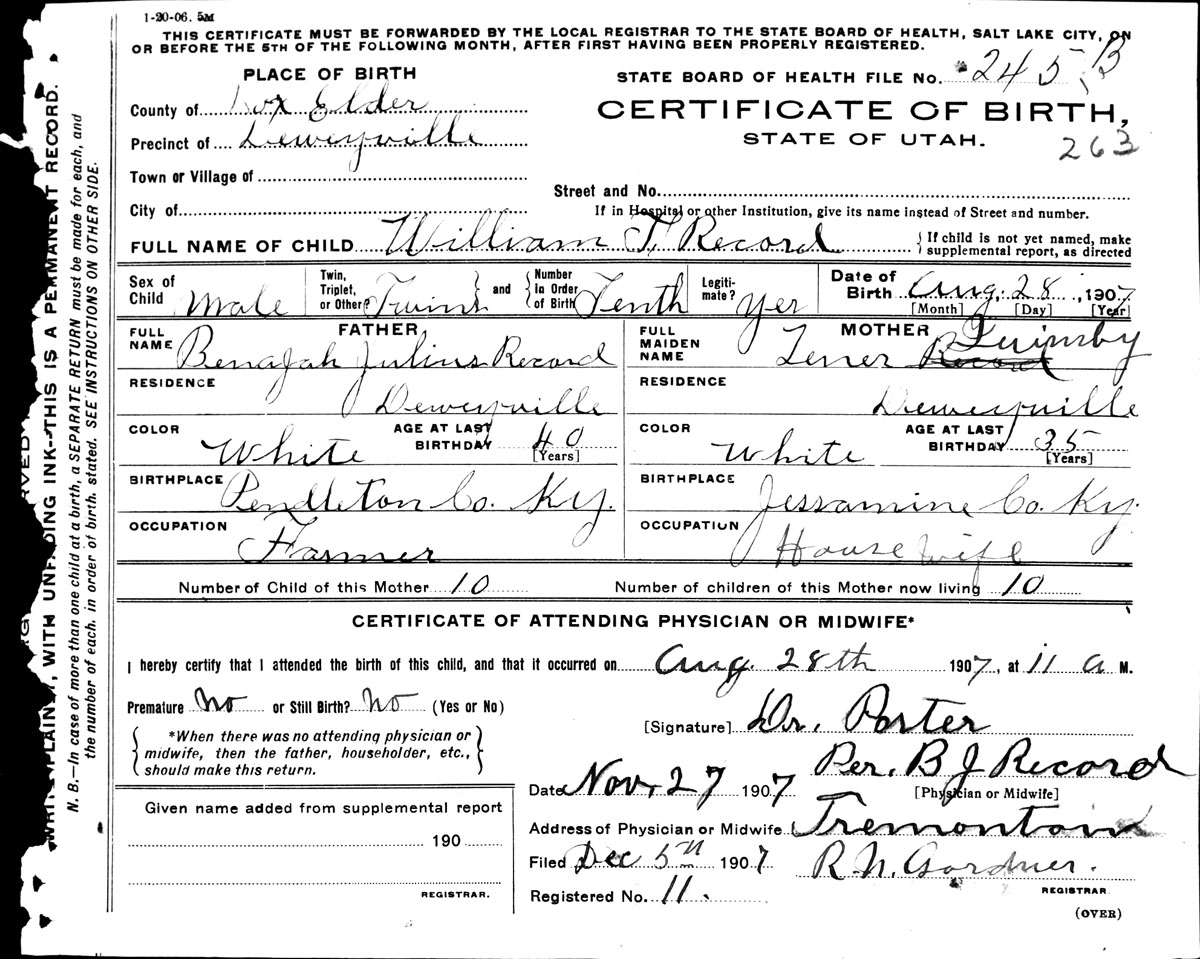 1-20-06. 5M
THIS CERTIFICATE MUST BE FORWARDED BY THE LOCAL REGISTRAR TO THE STATE BOARD OF HEALTH, SALT LAKE CITY, ON
OR BEFORE THE 5TH OF THE FOLLOWING MONTH, AFTER FIRST HAVING BEEN PROPERLY REGISTERED.
PLACE OF BIRTH
STATE BOARD OF HEALTH FILE No. 245 B
County of Box Elder
CERTIFICATE OF BIRTH,
Precinct of Deweyville
STATE OF UTAH.
263
Town or Village of
Street and No.
City of
If in Hospital or other Institution, give its name instead of Street and number.
FULL NAME OF CHILD William T. Record
{ If child is not yet named, make
supplemental report, as directed
Sex of Child Male
Twin, Triplet, or Other? Twins } and { Number in Order of Birth Tenth
Legiti-mate? Yes
Date of Birth Aug. 28, 1907
[Month] [Day] [Year]
FATHER
FULL NAME Benajah Julius Record
RESIDENCE
Deweyville
COLOR White AGE AT LAST BIRTHDAY 40
[Years]
BIRTHPLACE Pendleton Co. Ky.
OCCUPATION Farmer
MOTHER
FULL MAIDEN NAME Lener Record
RESIDENCE
Deweyville
COLOR White AGE AT LAST BIRTHDAY 35
[Years]
BIRTHPLACE Jessamine Co. Ky.
OCCUPATION House wife
Number of Child of this Mother 10 Number of children of this Mother now living 10
CERTIFICATE OF ATTENDING PHYSICIAN OR MIDWIFE*
I hereby certify that I attended the birth of this child, and that it occurred on Aug. 28th 1907, at 11 a M.
Premature No or Still Birth? No (Yes or No)
{ *When there was no attending physician or
midwife, then the father, householder, etc.,
should make this return. }
[Signature] Dr. Porter
Per. B J Record
Date Nov. 27 1907
[Physician or Midwife]
Given name added from supplemental report
190
REGISTRAR.
Address of Physician or Midwife Tremontain
Filed Dec 5th 1907 R. N. Gardner.
REGISTRAR
Registered No. 11.
(OVER)
WRITE PLAINLY, WITH UNFADING INK-THIS IS A PERMANENT RECORD.
N. B.—In case of more than one child at a birth, a SEPARATE RETURN must be made for each, and
the number of each, in order of birth, stated. SEE INSTRUCTIONS ON OTHER SIDE.